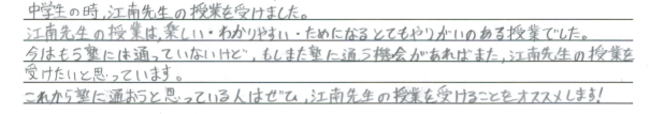 中学生の時,江南先生の授業を受けました。
江南先生の授業は,楽しい・わかりやすい・ためになるとてもやりがいのある授業でした。
今はもう塾には通っていないけど,もしまた塾に通う機会があればまた,江南先生の授業を
受けたいと思っています。
これから塾に通おうと思っている人はぜひ,江南先生の授業を受けることをオススメします!